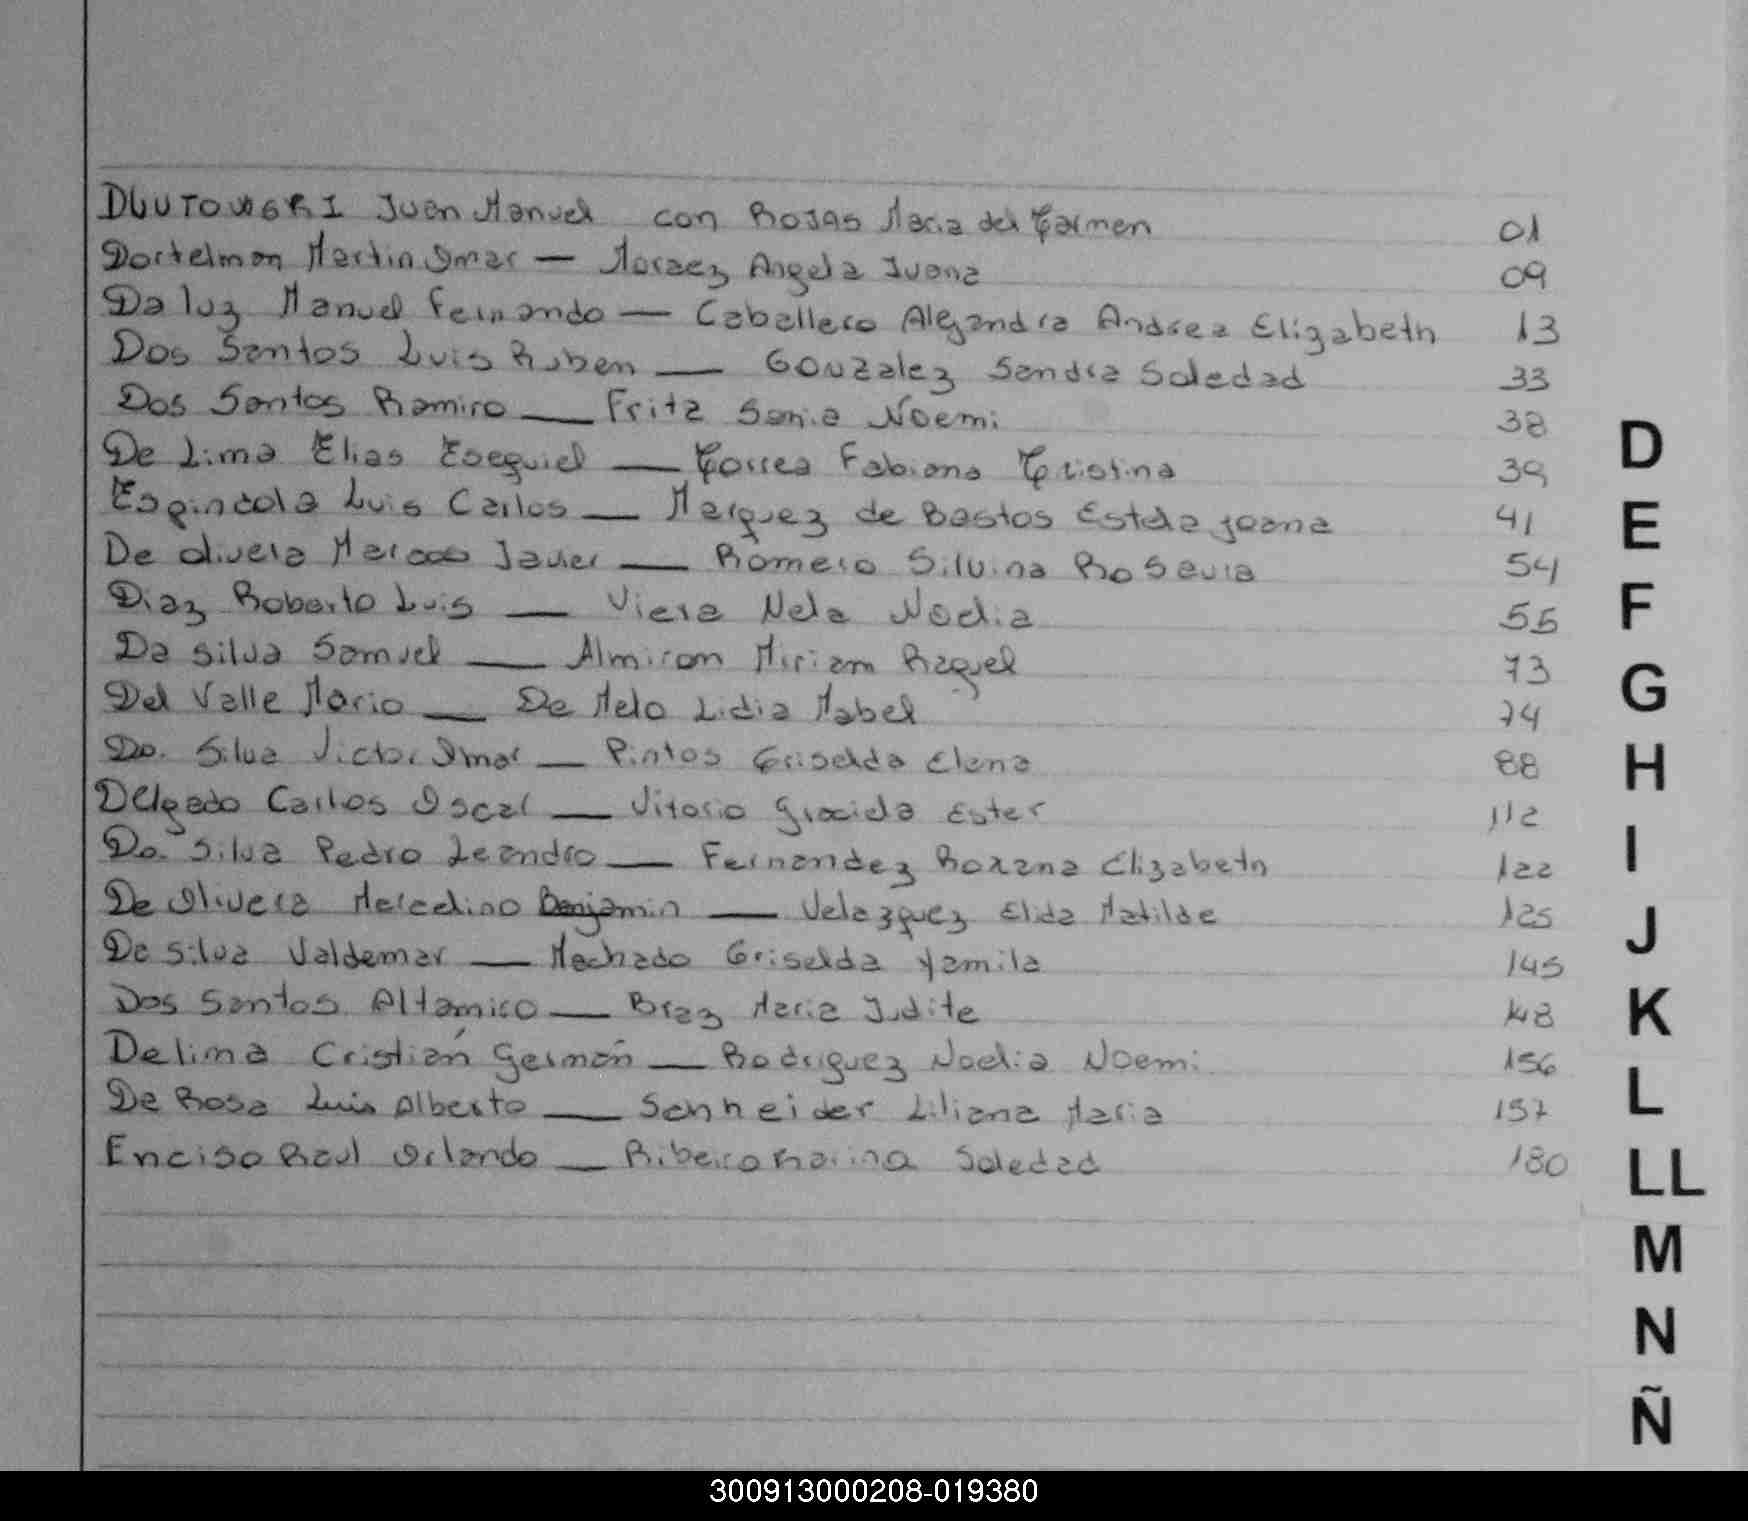 DLUTOWSKI Juan Manuel con ROJAS Maria del Carmen 01
Dortelmon Martin Omar — Moraez Angela Juana 09
Da luz Manuel Fernando — Caballero Alejandra Andrea Elizabeth 13
Dos Santos Luis Ruben — Gonzalez Sandra Soledad 33
Dos Santos Ramiro — Fritz Sonia Noemi 38
De Lima Elias Esequiel — Correa Fabiana Cristina 39
Espindola Luis Carlos — Marquez de Bastos Estela joana 41
De olivera Marcos Javier — Romero Silvina 54
Diaz Roberto Luis — Viera Nela Noelia 55
Da silva Samuel — Almiron Miriam Raquel 73
Del Valle Mario — De Melo Lidia Mabel 74
Da. Silva Victor Omar — Pintos Griselda Elena 88
Delgado Carlos Oscar — Vitorio Graciela Ester 112
Da. Silva Pedro Leandro — Fernandez Roxana Elizabeth 122
De Olivera Marcelino Benjamin — Velazquez Elida Matilde 125
Da silva Valdemar — Machado Griselda Yamila 145
Dos Santos Altamiro — Braz Maria Judite 148
Delima Cristian Germán — Rodriguez Noelia Noemi 156
De Rosa Luis Alberto — Schneider Liliana Maria 157
Enciso Raul Orlando — Ribeiro Marina Soledad 180
D
E
F
G
H
I
J
K
L
LL
M
N
Ñ
300913000208-019380